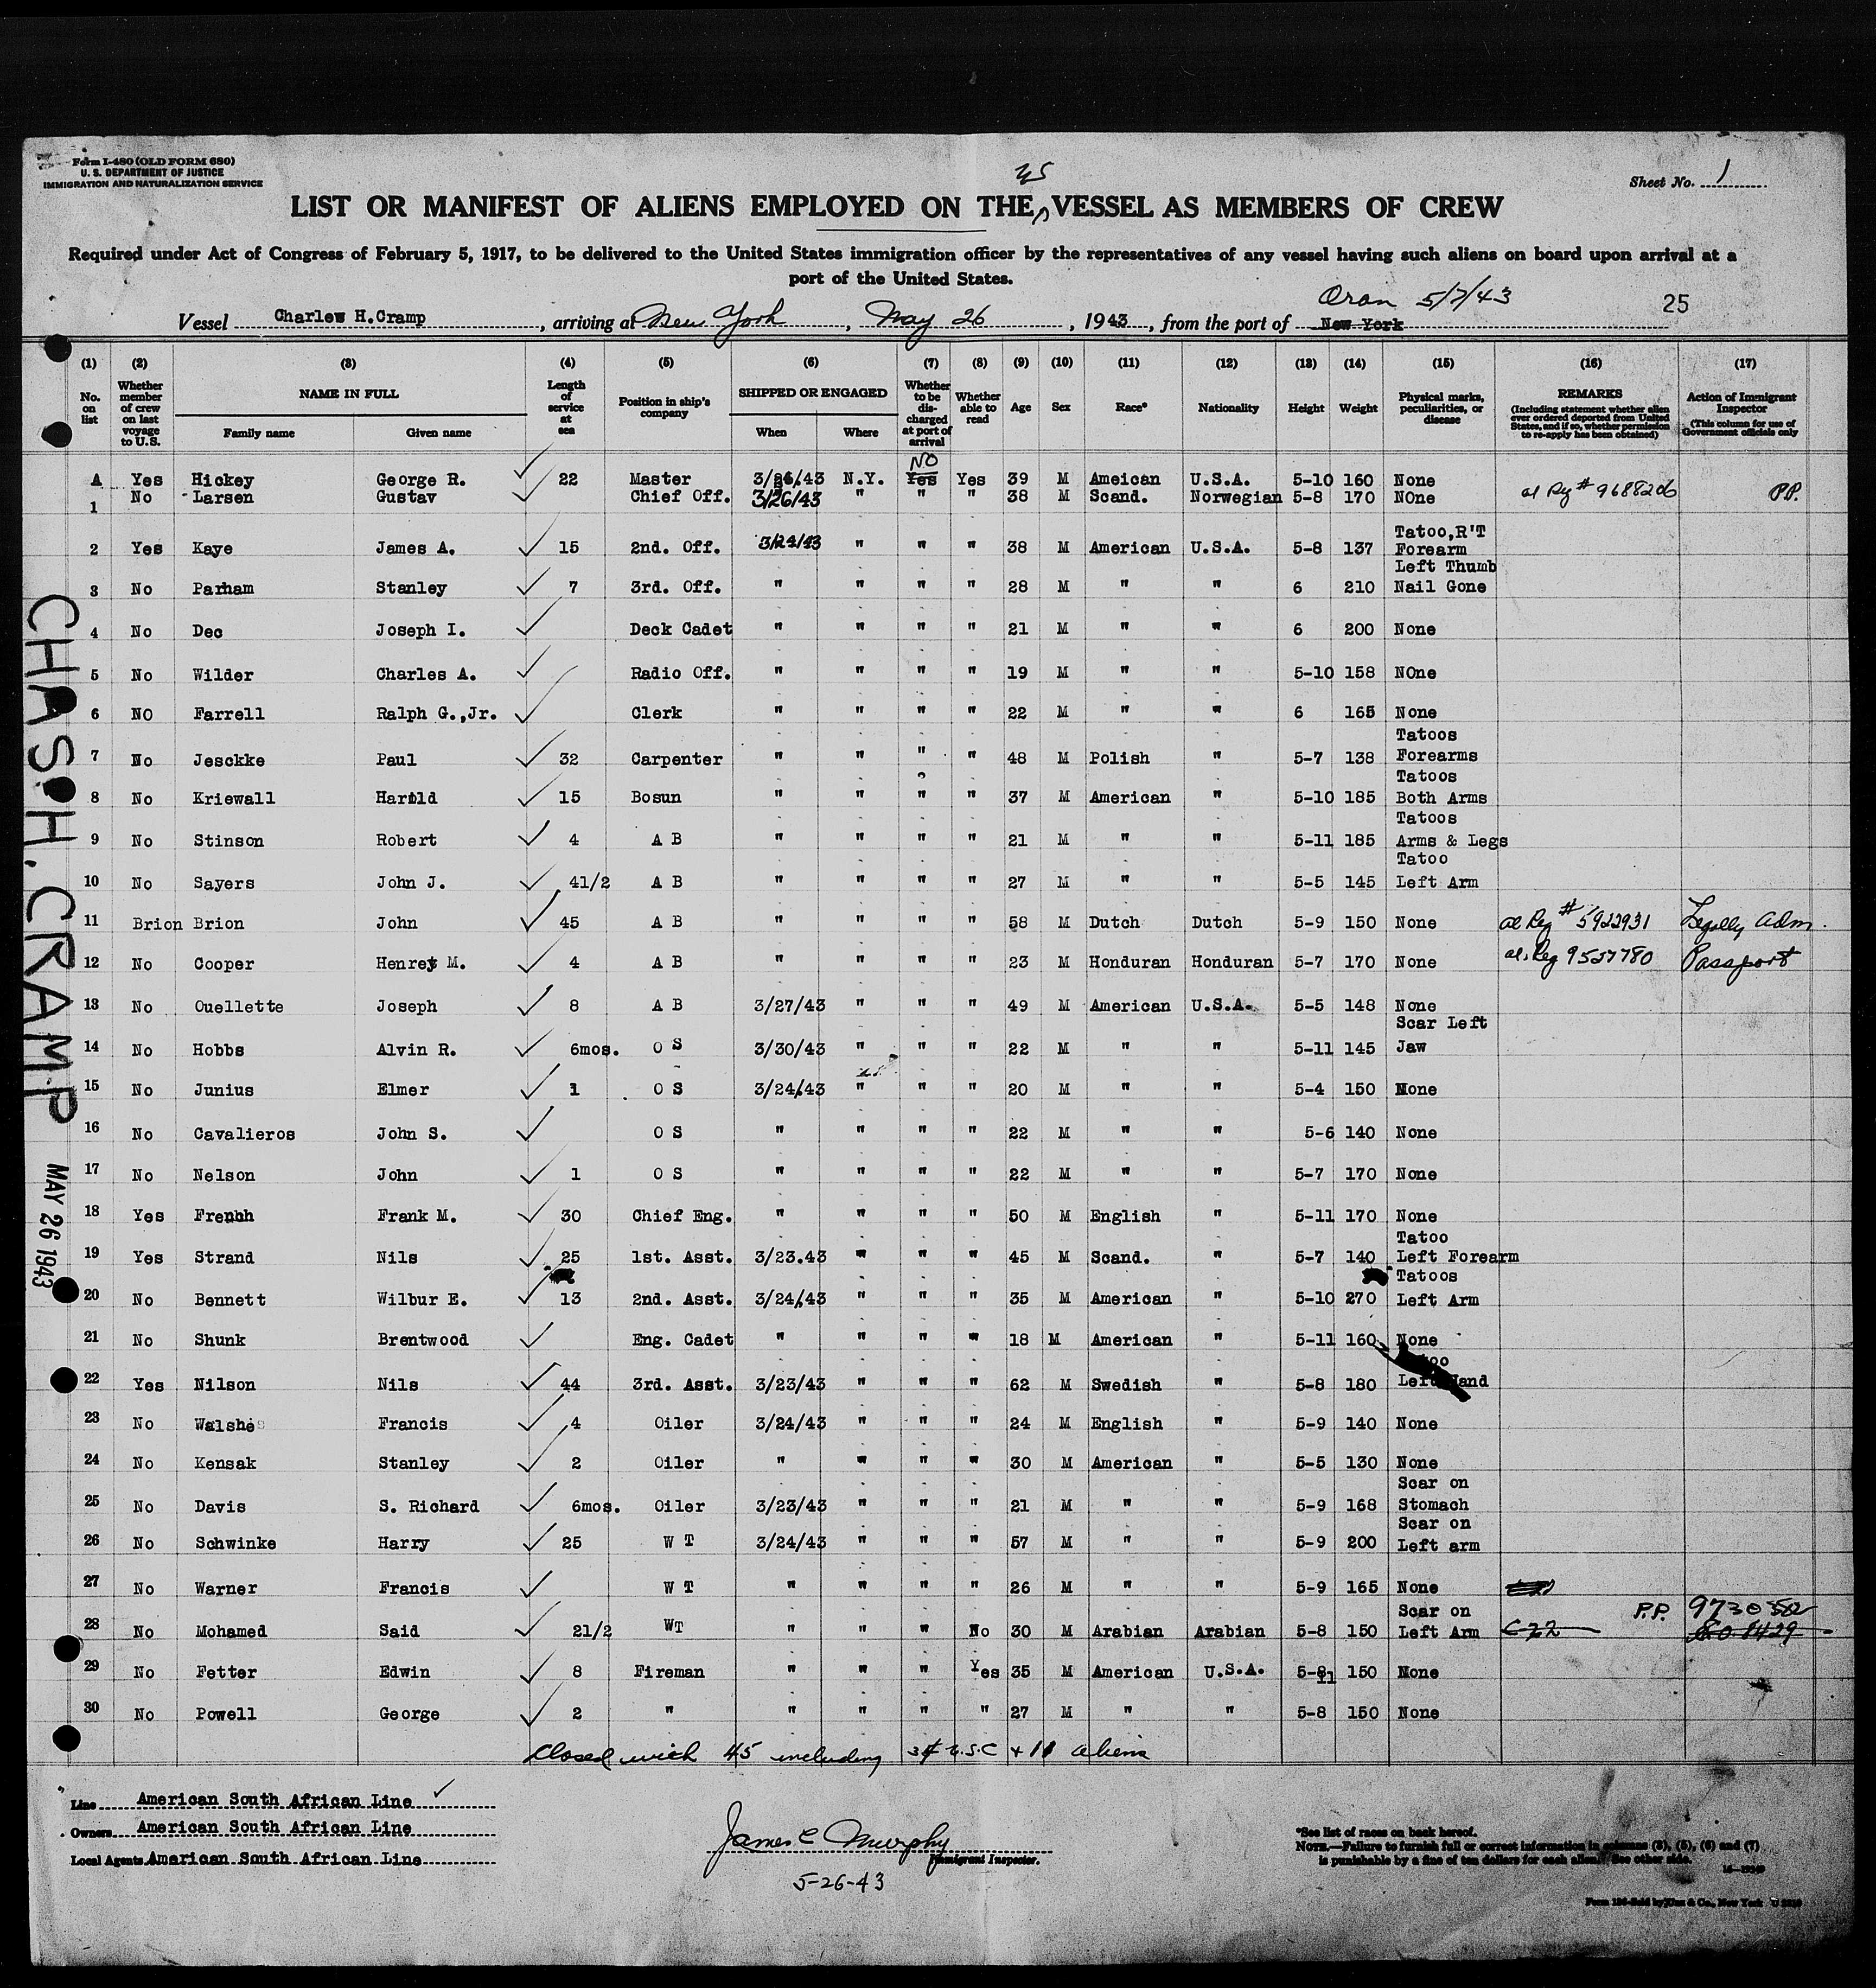 Form I-480 (OLD FORM 680)
U. S. DEPARTMENT OF JUSTICE
IMMIGRATION AND NATURALIZATION SERVICE
Sheet No. 1
US
LIST OR MANIFEST OF ALIENS EMPLOYED ON THE VESSEL AS MEMBERS OF CREW
Required under Act of Congress of February 5, 1917, to be delivered to the United States immigration officer by the representatives of any vessel having such aliens on board upon arrival at a
port of the United States.
Oran 5/7/43 25
Vessel Charlew H.Cramp, arriving at New York, May 26, 1943, from the port of New York
(1) (2) (3) (4) (5) (6) (7) (8) (9) (10) (11) (12) (13) (14) (15) (16) (17)
No. on list Whether member of crew on last voyage to U.S. NAME IN FULL Family name Given name Length of service at sea Position in ship's company SHIPPED OR ENGAGED When Where Whether to be discharged at port of arrival Whether able to read Age Sex Race* Nationality Height Weight Physical marks, peculiarities, or disease REMARKS (Including statement whether alien ever ordered deported from United States, and if so, whether permission to re-apply has been obtained) Action of Immigrant Inspector (This column for use of Government officials only
NO
A Yes Hickey George R. 22 Master 3/26/43 N.Y. Yes Yes 39 M Ameican U.S.A. 5-10 160 None
1 No Larsen Gustav Chief Off. 3/26/43 " " " 38 M Scand. Norwegian 5-8 170 NOne al Reg # 9688206 P.P.
2 Yes Kaye James A. 15 2nd. Off. 3/24/43 " " " 38 M American U.S.A. 5-8 137 Tatoo,R'T Forearm
3 No Parham Stanley 7 3rd. Off. " " " " 28 M " " 6 210 Left Thumb Nail Gone
4 No Dec Joseph I. Deck Cadet " " " " 21 M " " 6 200 None
5 No Wilder Charles A. Radio Off. " " " " 19 M " " 5-10 158 NOne
6 NO Farrell Ralph G.,Jr. Clerk " " " " 22 M " " 6 165 None
7 No Jesckke Paul 32 Carpenter " " " " 48 M Polish " 5-7 138 Tatoos Forearms
8 No Kriewall Harold 15 Bosun " " " " 37 M American " 5-10 185 Tatoos Both Arms
9 No Stinson Robert 4 A B " " " " 21 M " " 5-11 185 Tatoos Arms & Legs
10 No Sayers John J. 41/2 A B " " " " 27 M " " 5-5 145 Tatoo Left Arm
11 Brion Brion John 45 A B " " " " 58 M Dutch Dutch 5-9 150 None al Reg # 5922931 Legally Adm.
12 No Cooper Henrey M. 4 A B " " " " 23 M Honduran Honduran 5-7 170 None al. Reg 9527780 Passport
13 No Ouellette Joseph 8 A B 3/27/43 " " " 49 M American U.S.A. 5-5 148 None
14 No Hobbs Alvin R. 6mos. O S 3/30/43 " " " 22 M " " 5-11 145 Scar Left Jaw
15 No Junius Elmer 1 O S 3/24/43 " " " 20 M " " 5-4 150 None
16 No Cavalieros John S. O S " " " " 22 M " " 5-6 140 None
17 No Nelson John 1 O S " " " " 22 M " " 5-7 170 None
18 Yes French Frank M. 30 Chief Eng. " " " " 50 M English " 5-11 170 None
19 Yes Strand Nils 25 1st. Asst. 3/23.43 " " " 45 M Scand. " 5-7 140 Tatoo Left Forearm
20 No Bennett Wilbur E. 13 2nd. Asst. 3/24/43 " " " 35 M American " 5-10 270 Tatoos Left Arm
21 No Shunk Brentwood Eng. Cadet " " " " 18 M American " 5-11 160 None
22 Yes Nilson Nils 44 3rd. Asst. 3/23/43 " " " 62 M Swedish " 5-8 180 Left Hand
23 No Walshe Francis 4 Oiler 3/24/43 " " " 24 M English " 5-9 140 None
24 No Kensak Stanley 2 Oiler " " " " 30 M American " 5-5 130 None
25 No Davis S. Richard 6mos. Oiler 3/23/43 " " " 21 M " " 5-9 168 Scar on Stomach
26 No Schwinke Harry 25 W T 3/24/43 " " " 57 M " " 5-9 200 Scar on Left arm
27 No Warner Francis W T " " " " 26 M " " 5-9 165 None
28 No Mohamed Said 21/2 WT " " " No 30 M Arabian Arabian 5-8 150 Scar on Left Arm C-22 P.P. 9730582
29 No Fetter Edwin 8 Fireman " " " Yes 35 M American U.S.A. 5-811 150 None
30 No Powell George 2 " " " " " 27 M " " 5-8 150 None
Closed with 45 including 34 U.S.C + 11 aliens
CHAS. H. CRAMP
MAY 26 1943
Line American South African Line
Owners American South African Line
Local Agents American South African Line
James C Murphy
Immigrant Inspector.
5-26-43
*See list of races on back hereof.
NOTE.—Failure to furnish full or correct information in columns (3), (5), (6) and (7)
is punishable by a fine of ten dollars for each alien. See other side.